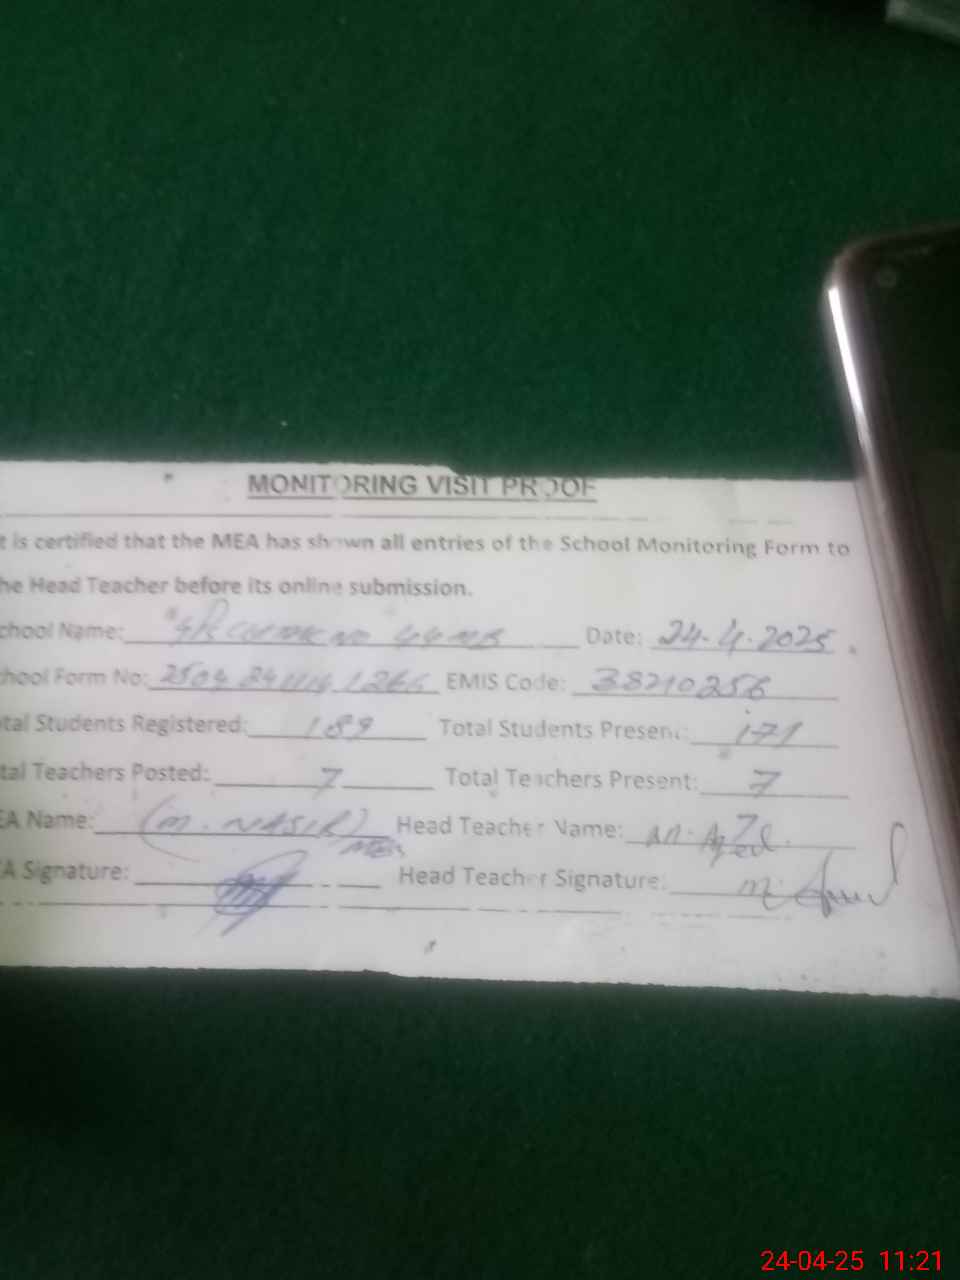 MONITORING VISIT PROOF
t is certified that the MEA has shown all entries of the School Monitoring Form to
he Head Teacher before its online submission.
chool Name: 44 MB Date: 24.4.2025
hool Form No: EMIS Code: 38210256
tal Students Registered: 189 Total Students Present: 171
tal Teachers Posted: 7 Total Teachers Present: 7
EA Name: (M. NASIR) Head Teacher Name:
A Signature: Head Teacher Signature:
24-04-25 11:21